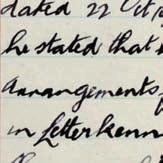 dated 22 Oct
he stated that
Arrangements
in Letterkenn